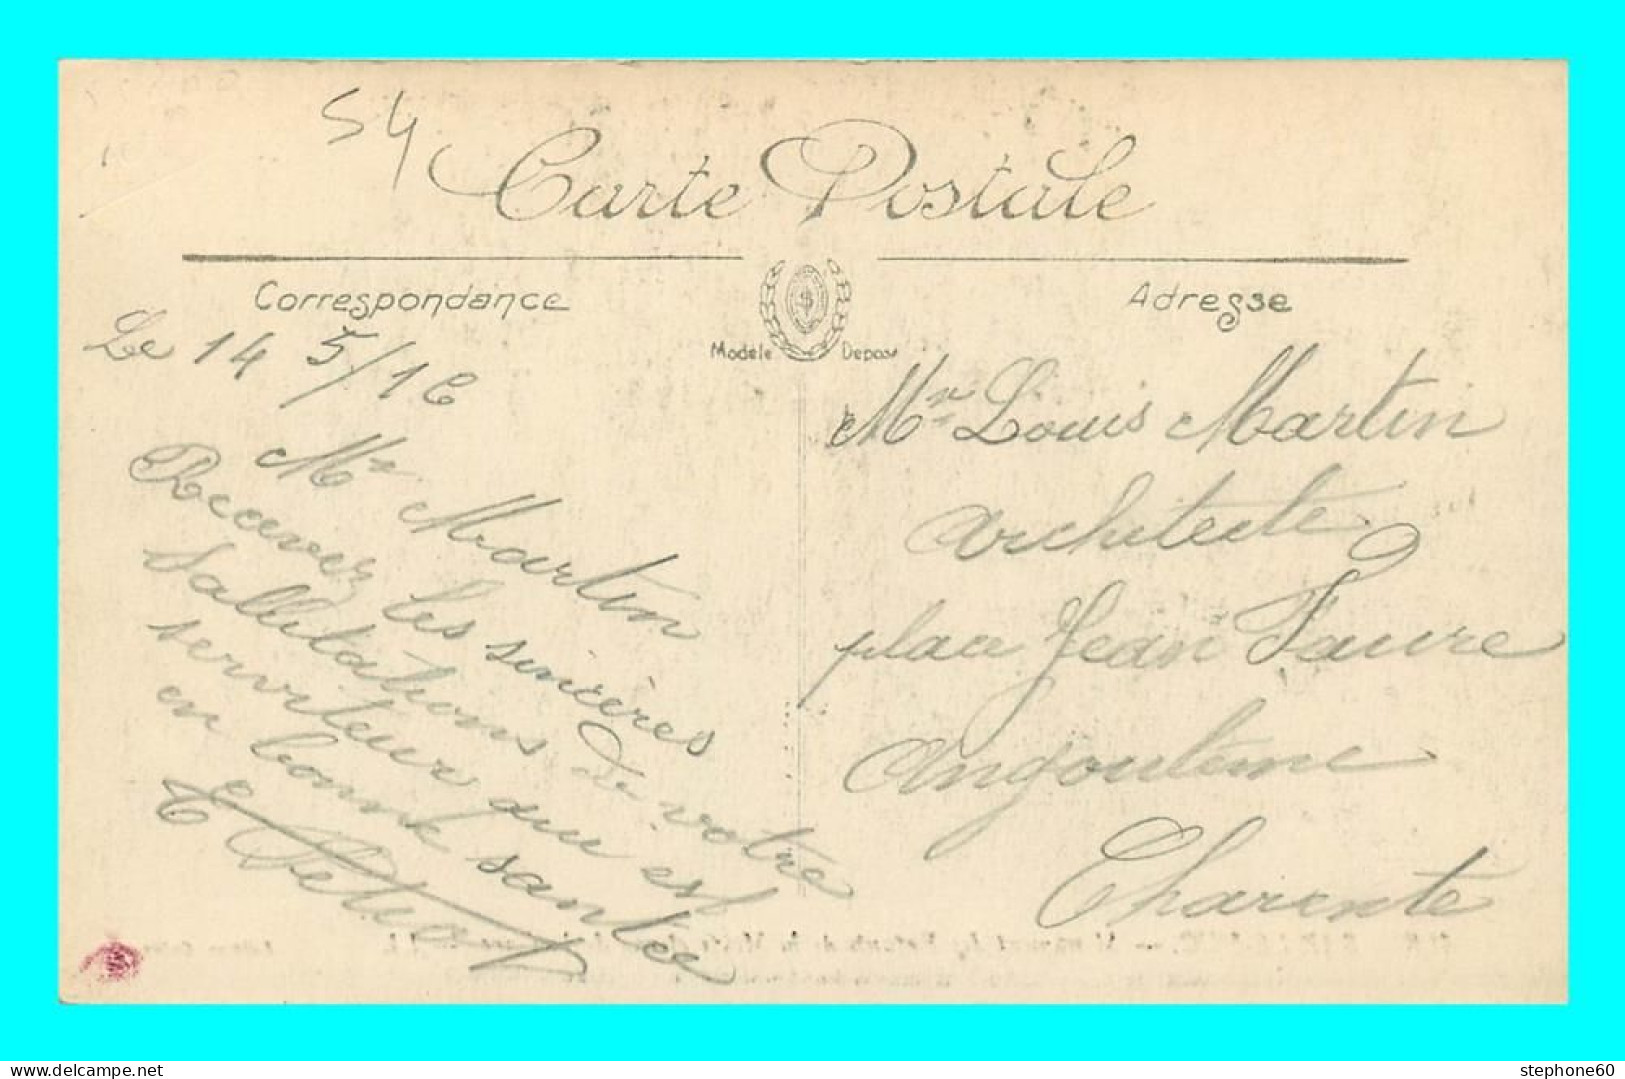 54
Carte Postale
Correspondance
Adresse
Modèle Déposé
Le 14 5/16
Mr Martin
Recevez les sincères
Sallutations de votre
serviteur qui est
en bonne santée
E
Mr Louis Martin
Architecte
place Jean Faure
Angoulème
Charente
www.delcampe.net
stephone60